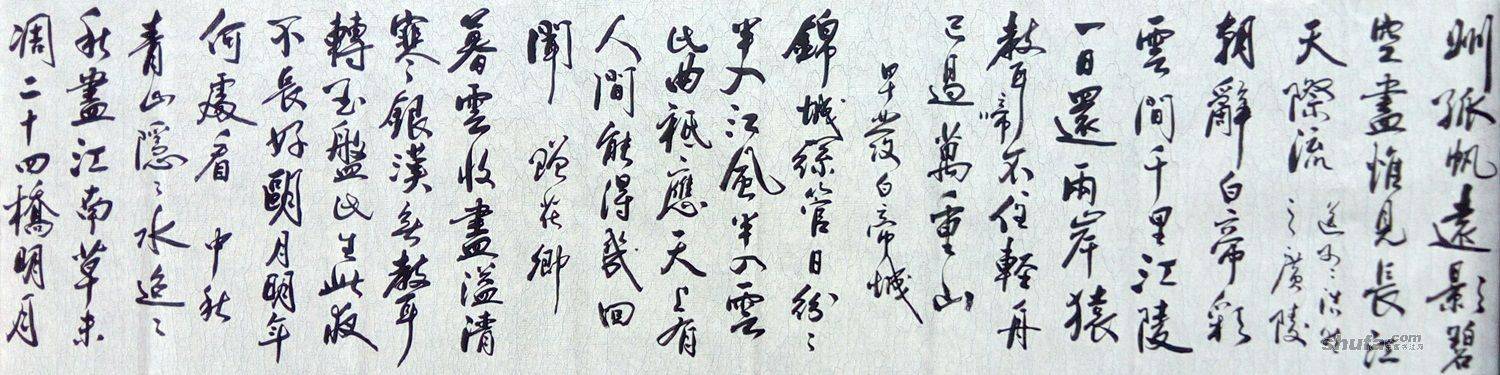 州孤帆遠影碧
空盡惟見長江
天際流
送孟浩然
之廣陵
朝辭白帝彩
雲間千里江陵
一日還兩岸猿
聲啼不住輕舟
已過萬重山
早發白帝城
錦城絲管日紛〻
半入江風半入雲
此曲祗應天上有
人間能得幾回
聞 贈花卿
暮雲收盡溢清
寒〻銀漢無聲
轉玉盤此生此夜
不長好朙月明年
何處看 中秋
青山隱〻水迢〻
秋盡江南草未
凋二十四橋明月
shufa.com